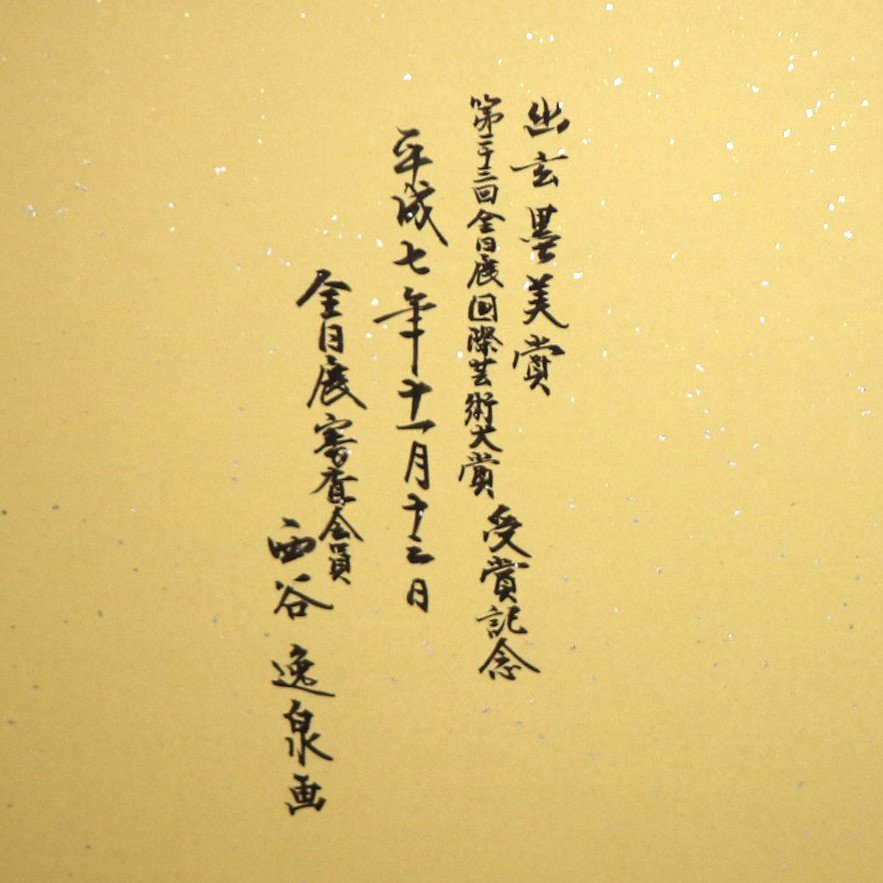 出玄墨美賞
第二十三回全日展国際芸術大賞
受賞記念
平成七年十一月十三日
全日展審査会員
西谷逸泉画